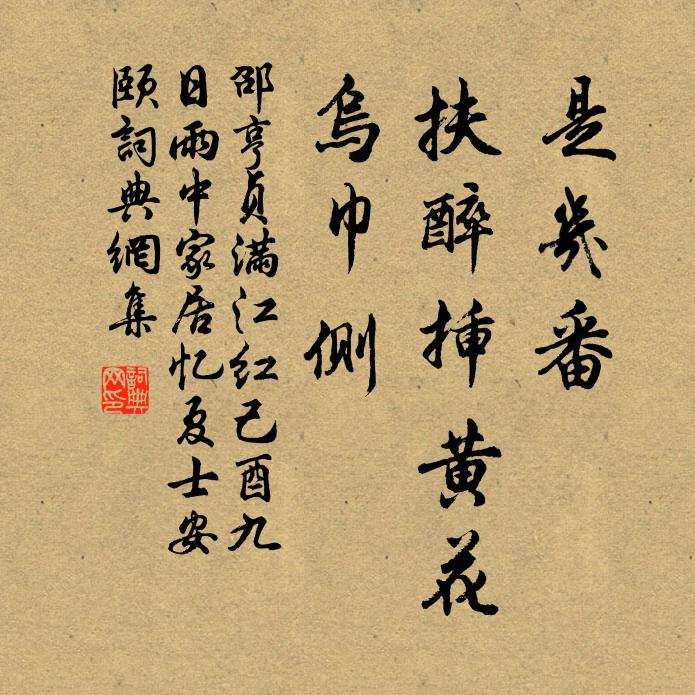 是幾番
扶醉插黄花
烏巾側
邵亨貞满江红己酉九
日雨中家居忆夏士安
頤詞典網集
詞典
网印